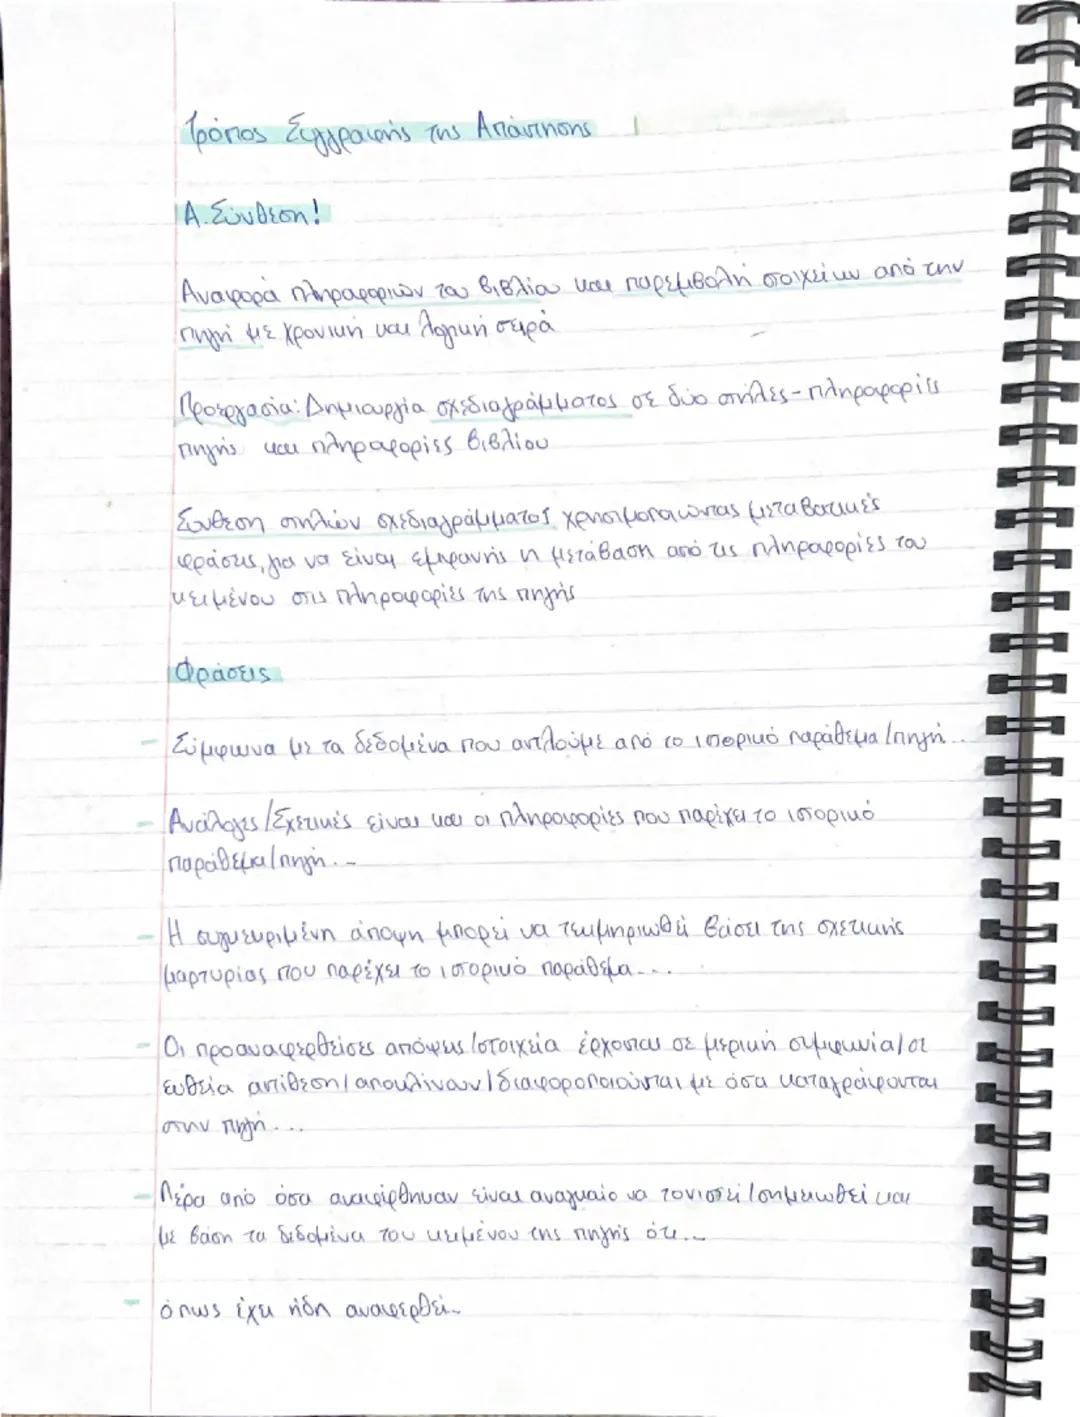 Τρόπος Συγγραφής της Απάντησης
Α. Σύνθεση!
Αναφορά πληροφοριών του βιβλίου και παρεμβολή στοιχείων από την
πηγή με χρονική και λογική σειρά
Προεργασία: Δημιουργία σχεδιαγράμματος σε δύο στήλες - πληροφορίες
πηγής και πληροφορίες βιβλίου
Σύνθεση στηλών σχεδιαγράμματος χρησιμοποιώντας μεταβατικές
φράσεις, για να είναι εμφανής η μετάβαση από τις πληροφορίες του
κειμένου στις πληροφορίες της πηγής
Φράσεις
- Σύμφωνα με τα δεδομένα που αντλούμε από το ιστορικό παράθεμα/πηγή...
- Ανάλογες/Σχετικές είναι και οι πληροφορίες που παρέχει το ιστορικό
παράθεμα/πηγή...
- Η συγκεκριμένη άποψη μπορεί να τεκμηριωθεί βάσει της σχετικής
μαρτυρίας που παρέχει το ιστορικό παράθεμα...
- Οι προαναφερθείσες απόψεις/στοιχεία έρχονται σε μερική συμφωνία/σε
ευθεία αντίθεση/αποκλίνουν/διαφοροποιούνται με όσα καταγράφονται
στην πηγή...
- Πέρα από όσα αναφέρθηκαν είναι αναγκαίο να τονιστεί/σημειωθεί και
με βάση τα δεδομένα του κειμένου της πηγής ότι...
- όπως έχει ήδη αναφερθεί...